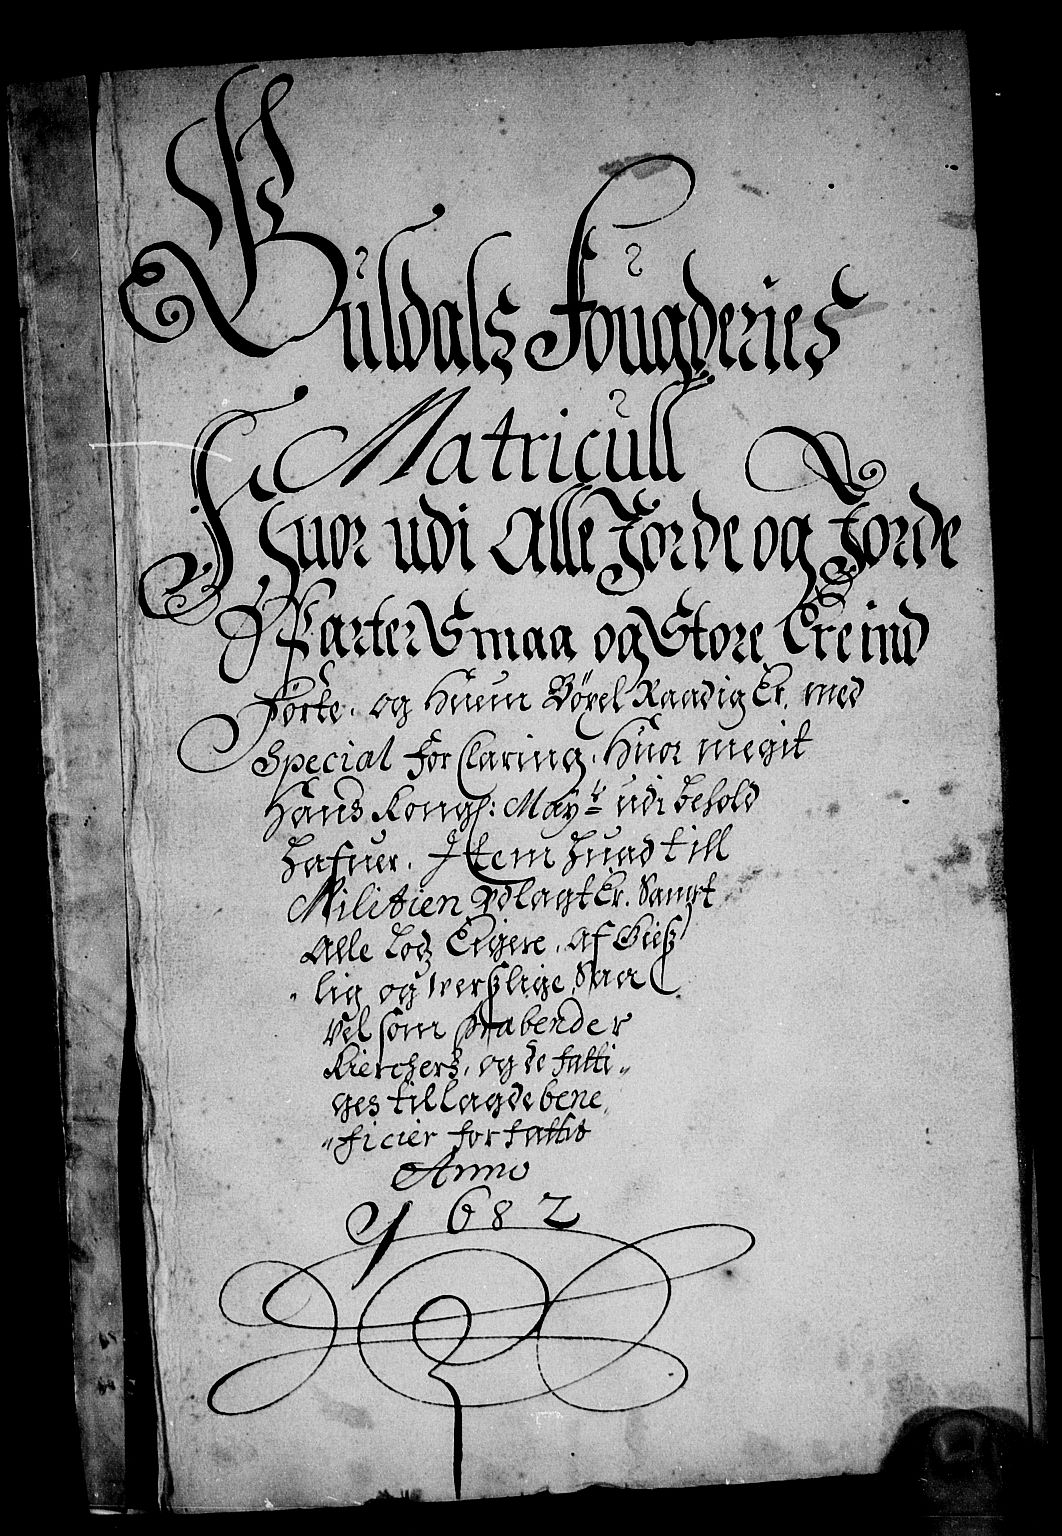 Guldals Fougderies
Matricull
Huor udi Alle Jorde og Jorde
Parter Smaa og Store Ere ind
Førte. og Huem Böxel Raadig Er. med
Special forClaring. Huor megit
Hans Kongl: Mayt udi behold
hafuer. Item huad till
Militien Udlagt Er. Sampt
Alle Lodz Eigere. Af Giest
lig og werslige Saa
vel som Præbender
Kierchers. og de fatti„
ges tillagde bene
„ficier forfattit
Anno
1682